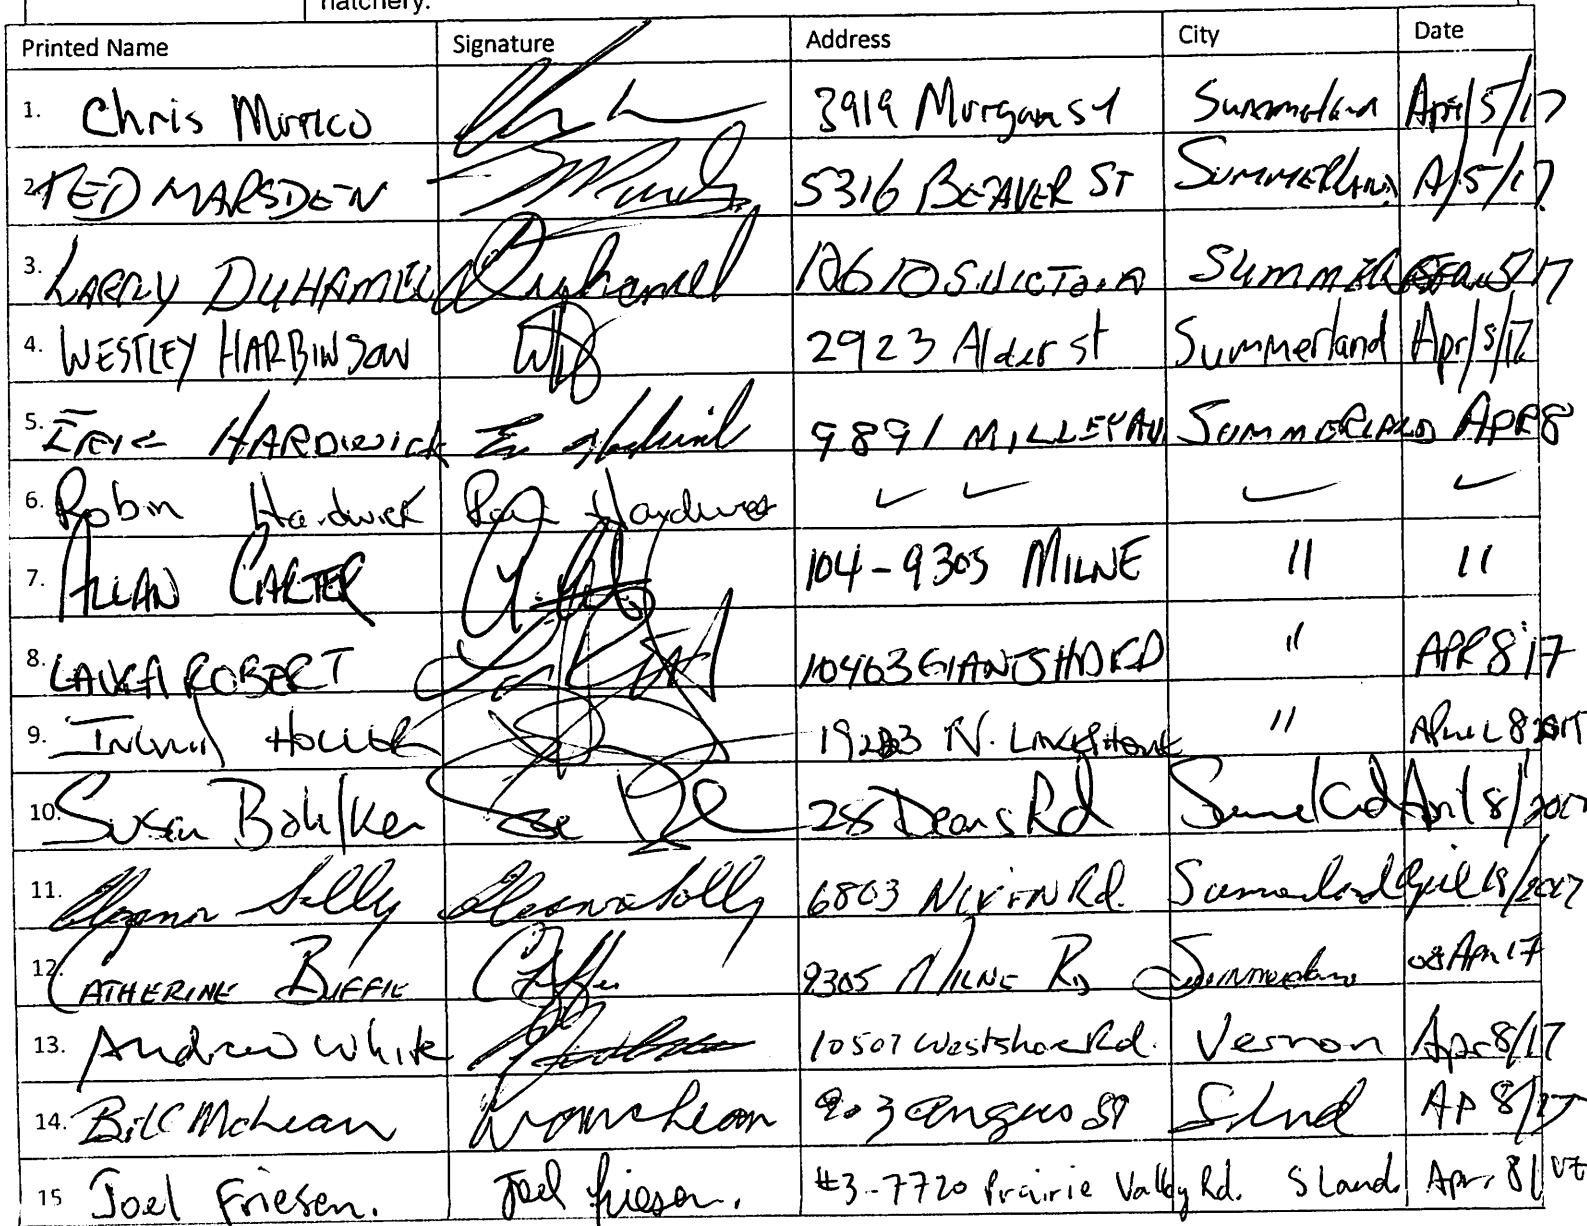 hatchery.
Printed Name Signature Address City Date
1. Chris Mutico 3919 Morgan st Summerland April 5/17
2. TED MARSDEN 5316 BEAVER ST SUMMERLAND A/5/17
3. LARRY DUHAMEL Duhamel SUMMER 5/17
4. WESTLEY HARBINSON WH 2923 Alder st Summerland Apr/5/17
5. ERIC HARDWICK 9891 MILLER AV SUMMERLAND APR 8
6. Robin Hardwick Hardwick ✓ ✓ ✓ ✓
7. ALLAN CARTER 104-9305 MILNE " "
8. ROBERT 10463 GIANTSHD RD " APR 8 '17
9. N. LAKESHORE " APRIL 8
10. Susan 28 Deans Rd Summerland April 8/2017
11. Eleanor Solly Eleanor Solly 6803 NIXON Rd. Summerland April 8/2017
12. CATHERINE BIFFIE 9305 MILNE RD Summerland 08 Apr 17
13. Andrew White 10507 Westshore Rd. Vernon Apr 8/17
14. Bill McLean McLean angus St Slnd AP 8/17
15 Joel Friesen. Joel Friesen. #3-7720 Prairie Valley Rd. Sland. Apr. 8/17